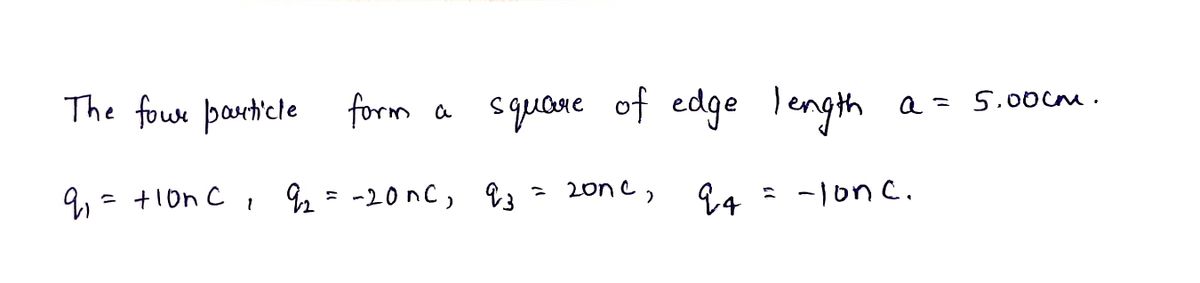 The four particle form a square of edge length a = 5.00cm.
q₁ = +10nC, q₂ = -20nC, q₃ = 20nC, q₄ = -10nC.